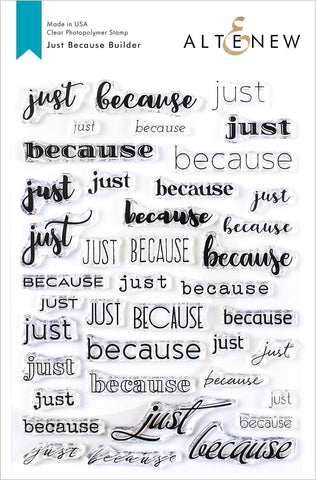 Made in USA
Clear Photopolymer Stamp
Just Because Builder
ALTENEW
just because just
just because just
because because
just just because just
because because
just JUST BECAUSE because
BECAUSE just because
JUST
just JUST BECAUSE because
just because just just
just because because
just just
because just because because
just because